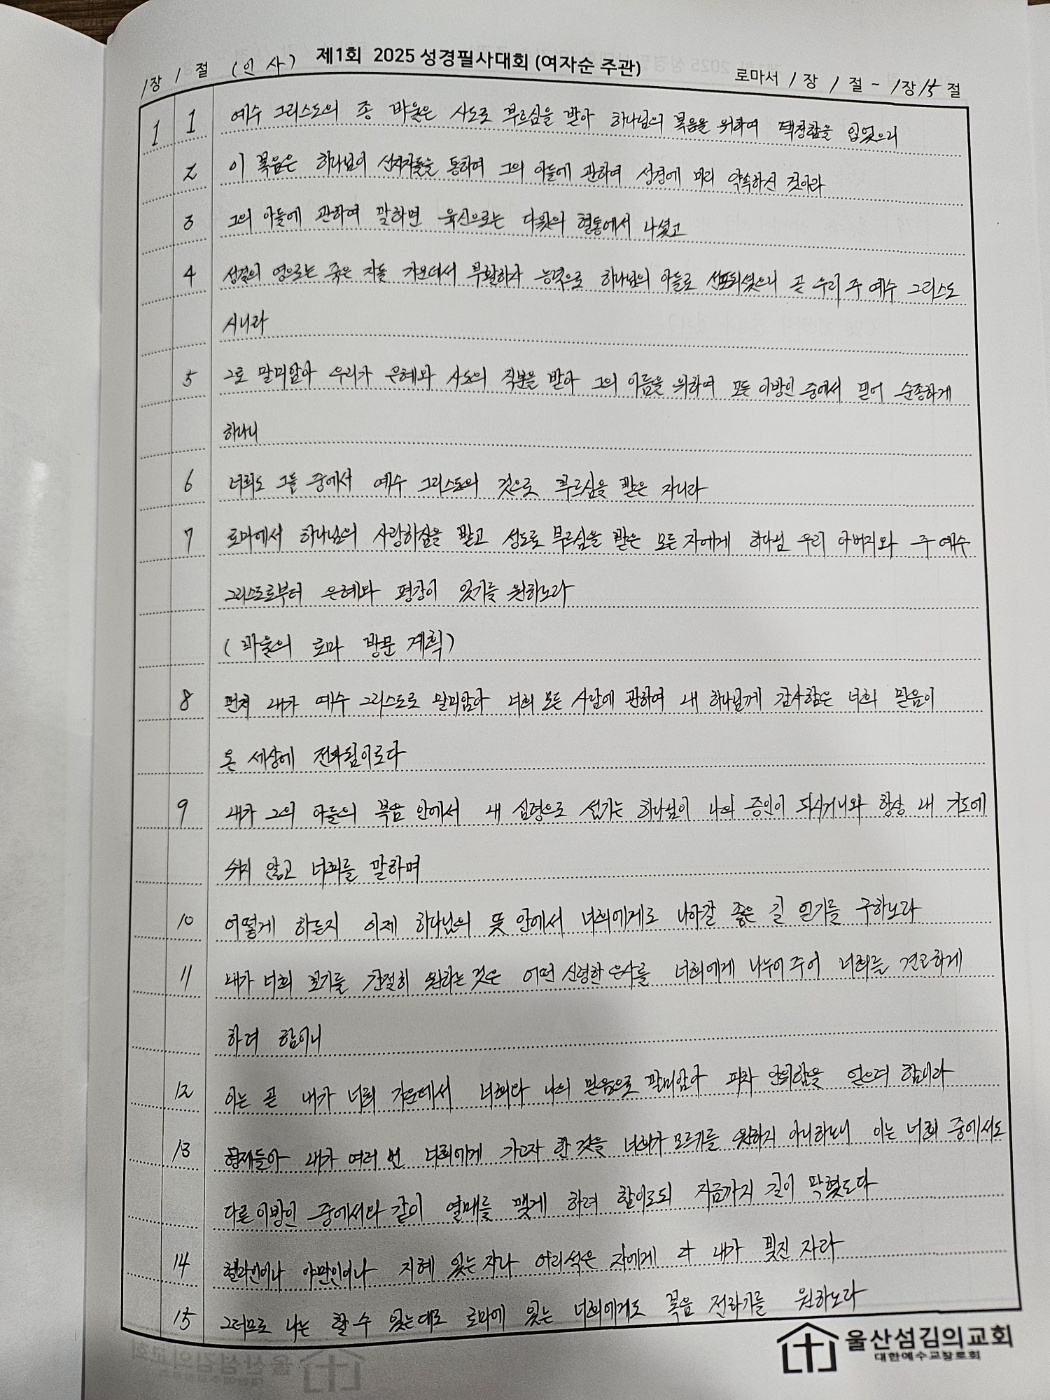 제1회 2025 성경필사대회 (여자순 주관)
1장 1절 (인사) 로마서 1장 1절 - 1장 15절
1 1 예수 그리스도의 종 바울은 사도로 부르심을 받아 하나님의 복음을 위하여 택정함을 입었으니
2 이 복음은 하나님이 선지자들을 통하여 그의 아들에 관하여 성경에 미리 약속하신 것이라
3 그의 아들에 관하여 말하면 육신으로는 다윗의 혈통에서 나셨고
4 성결의 영으로는 죽은 자들 가운데서 부활하사 능력으로 하나님의 아들로 선포되셨으니 곧 우리 주 예수 그리스도
시니라
5 그로 말미암아 우리가 은혜와 사도의 직분을 받아 그의 이름을 위하여 모든 이방인 중에서 믿어 순종하게
하나니
6 너희도 그들 중에서 예수 그리스도의 것으로 부르심을 받은 자니라
7 로마에서 하나님의 사랑하심을 받고 성도로 부르심을 받은 모든 자에게 하나님 우리 아버지와 주 예수
그리스도로부터 은혜와 평강이 있기를 원하노라
(바울의 로마 방문 계획)
8 먼저 내가 예수 그리스도로 말미암아 너희 모든 사람에 관하여 내 하나님께 감사함은 너희 믿음이
온 세상에 전파됨이로다
9 내가 그의 아들의 복음 안에서 내 심령으로 섬기는 하나님이 나의 증인이 되시거니와 항상 내 기도에
쉬지 않고 너희를 말하며
10 어떻게 하든지 이제 하나님의 뜻 안에서 너희에게로 나아갈 좋은 길 얻기를 구하노라
11 내가 너희 보기를 간절히 원하는 것은 어떤 신령한 은사를 너희에게 나누어 주어 너희를 견고하게
하려 함이니
12 이는 곧 내가 너희 가운데서 너희와 나의 믿음으로 말미암아 피차 안위함을 얻으려 함이라
13 형제들아 내가 여러 번 너희에게 가고자 한 것을 너희가 모르기를 원하지 아니하노니 이는 너희 중에서도
다른 이방인 중에서와 같이 열매를 맺게 하려 함이로되 지금까지 길이 막혔도다
14 헬라인이나 야만인이나 지혜 있는 자나 어리석은 자에게 다 내가 빚진 자라
15 그러므로 나는 할 수 있는대로 로마에 있는 너희에게도 복음 전하기를 원하노라
울산섬김의교회
대한예수교장로회